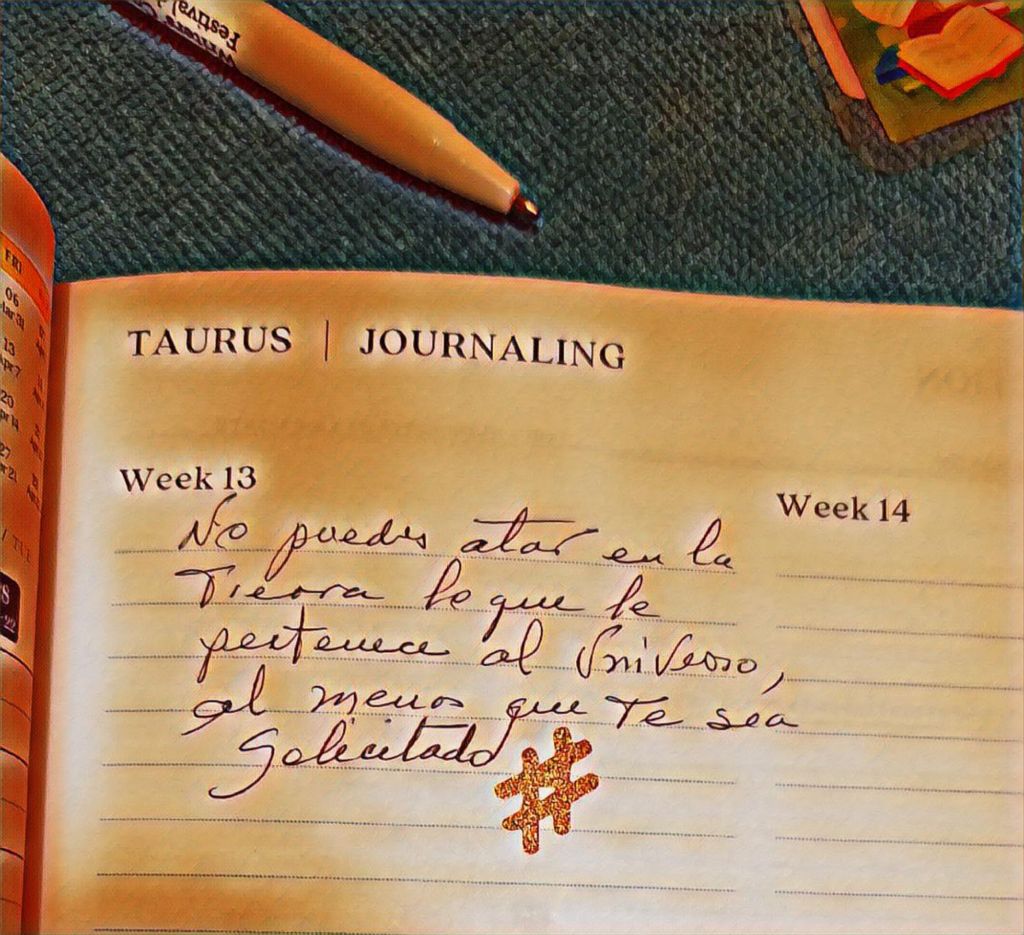 Writers
Festival
FRI
06
13
20
27
TAURUS | JOURNALING
Week 13
No puedes atar en la
Tierra lo que le
pertenece al Universo,
al menos que te sea
Solicitado
#
Week 14